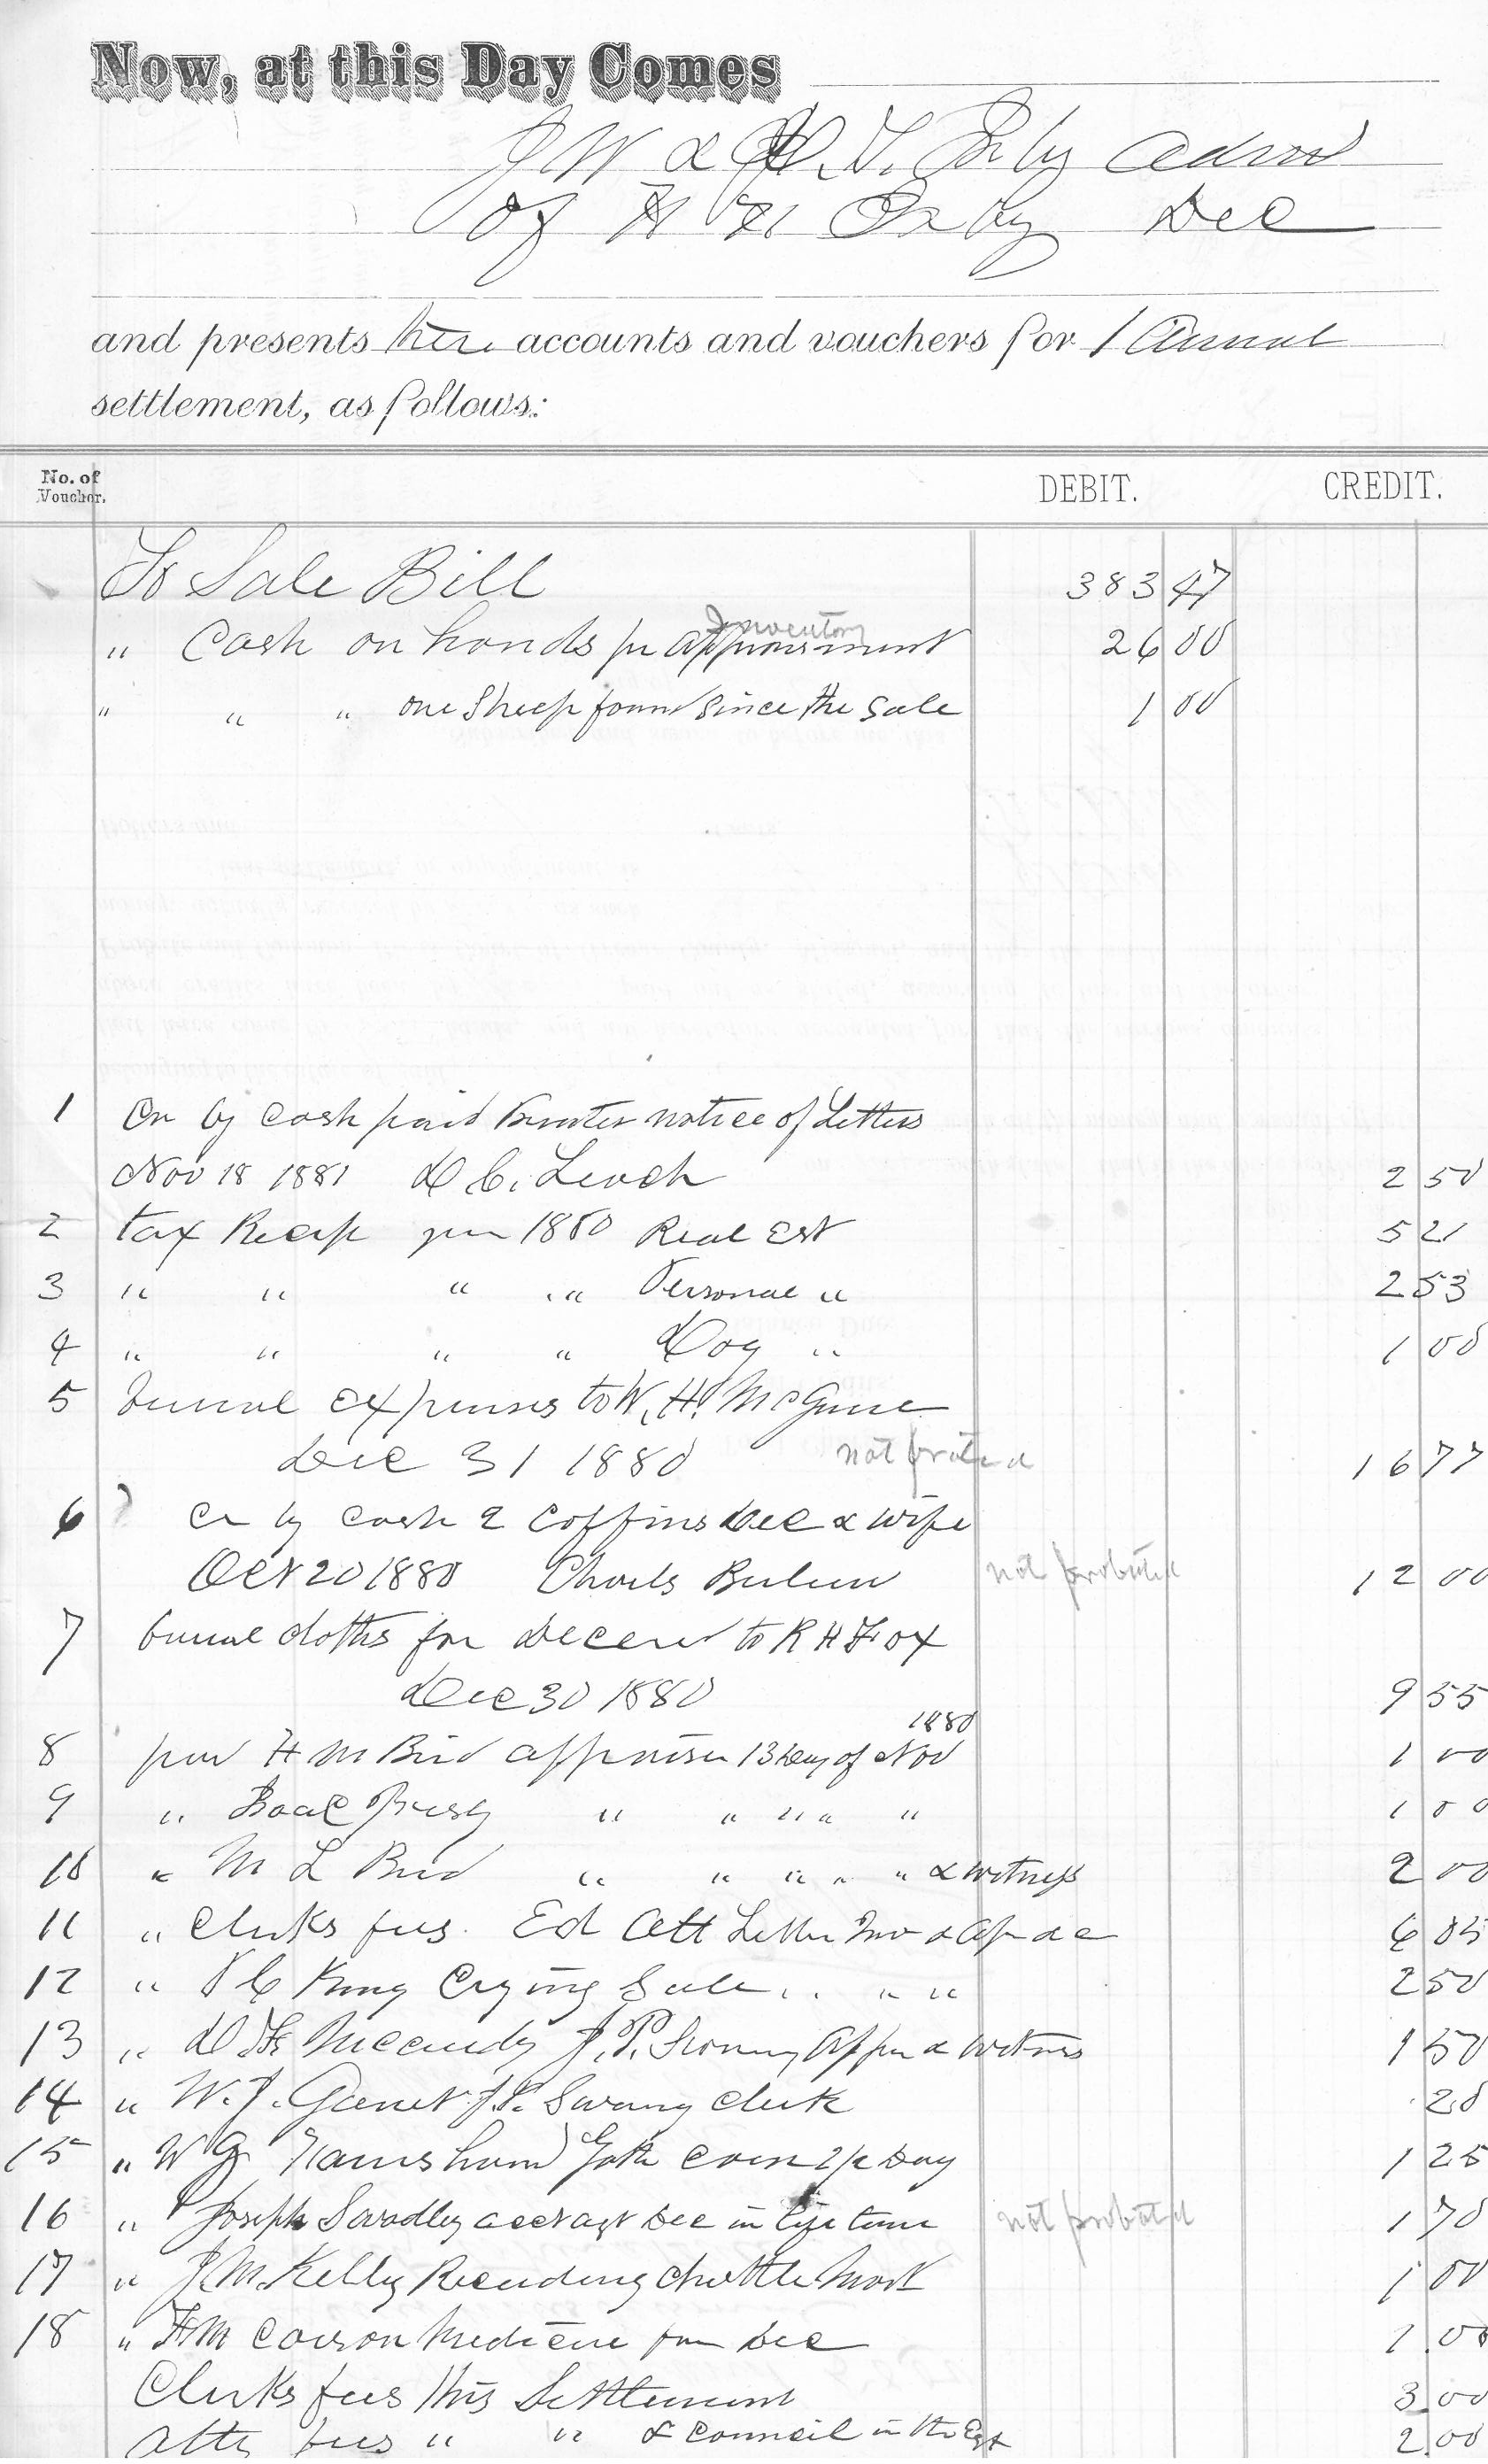 Now, at this Day Comes
J W & H. T. Exby Admr
of H H Exby Dec
and presents their accounts and vouchers for 1 Annual
settlement, as follows:
No. of Voucher. DEBIT. CREDIT.
To Sale Bill 383 47
Inventory
" Cash on hands pr appraisment 26 00
" " " one Sheep found since the sale 1 00
1 Cr by cash paid Printer notice of Letters
Nov 18 1881 D C. Leach 2 50
2 tax Receip 1880 Real Est 5 21
3 " " " " Personal " 2 53
4 " " " " Dog " 1 00
5 burial expenses to W. H. McGuire
Dec 31 1880 not probated 16 77
6 Cr by cash 2 Coffins Dec & wife
Oct 20 1880 Charls not probated 12 00
7 burial cloths for Deceased to R H Fox
Dec 30 1880 9 55
1880
8 paid H M Bird appraiser 13 Day of Nov 1 00
9 " Isaac " " " " " 1 00
10 " M L Bird " " " " " & witness 2 00
11 " Clerks fees Ed Ott Letter Inv & Ap & c 6 05
12 " King Crying Sale " " " 2 50
13 " J. P. Swearing Appr & witness 1 50
14 " W. J. Garret J. P. Swaring Clerk 20
15 " W G Coen 1/2 Day 1 25
16 " Joseph Swadley acct agt Dec in life time not probated 1 70
17 " J. M. Kelly Recording Chattle Mort 1 00
18 " F M Carson Medicine for Dec 1 00
Clerks fees this Settlement 3 00
Atty fees " " & Council in the Est 2 00